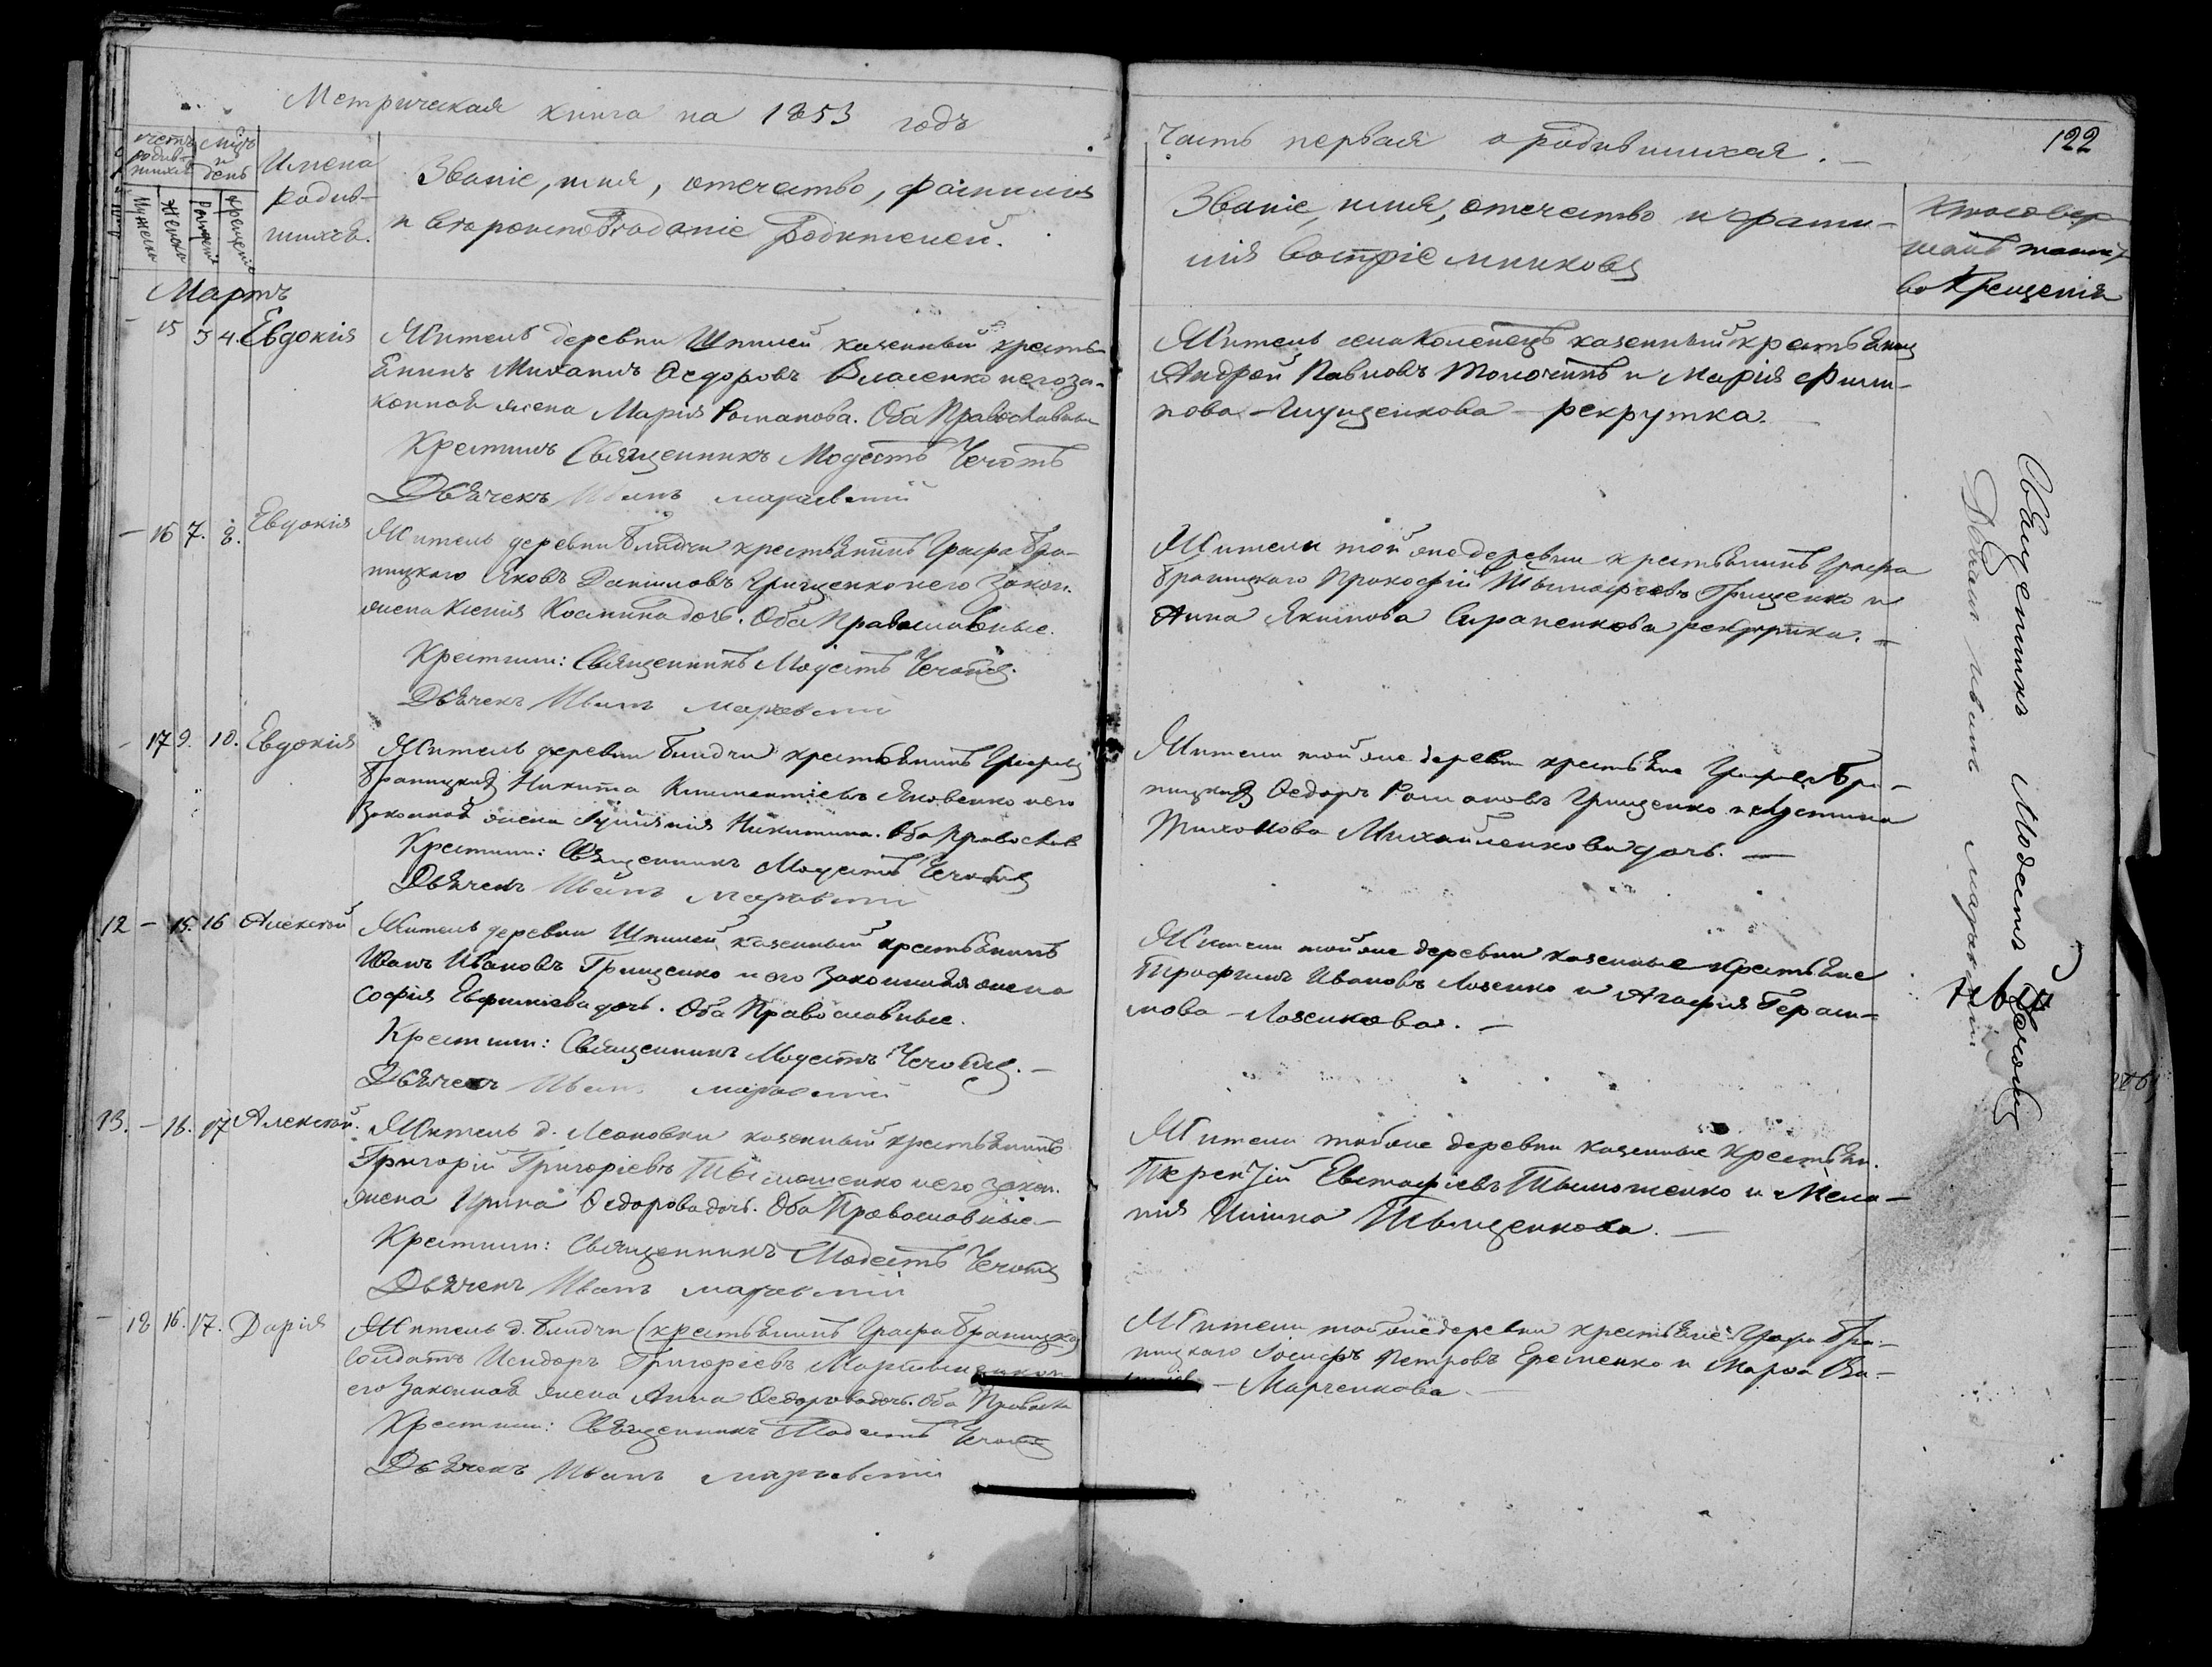 Метрическая книга на 1853 годъ
Часть первая о родившихся.
122
счетъ родив-шихся
Мужеска
Женска
мцъ и день
Рожденія
Крещенія
Имена
родив-
шихся.
Званіе, имя, отечество, фамилія
и вѣроисповѣданіе родителей.
Званіе, имя, отечество и фами-
лія воспріемниковъ
Кто совер
шалъ таинст
во Крещенія
Мартъ
– 15 3 4. Евдокія
Житель деревни Шпилей казенный кресть-
янинъ Михаилъ Ѳедоровъ Власенко и его за-
конная жена Марія Романова. Оба Православные
Крестилъ Священникъ Модестъ Чечотъ
Дьячекъ Иванъ
Житель села Коленецъ казенный крестьянинъ
Андрей Павловъ Толочинъ и Марія Филип-
пова рекрутка.
– 16 7. 8. Евдокія
Житель деревни Блидчи крестьянинъ Графа Бра-
ницкаго Яковъ Даниловъ Грищенко и его закон.
жена Ксенія Космина дочь. Оба Православные.
Крестили: Священникъ Модестъ Чечотъ.
Дьячекъ Иванъ
Жители той же деревни крестьянинъ Графа
Браницкаго Прокофій Тимофеевъ Грищенко и
Анна Якимова рекрутка. –
– 17 9. 10. Евдокія
Житель деревни Блидчи крестьянинъ Графовъ
Браницкихъ Никита Климентіевъ Яковенко и его
законная жена Никитина. Оба Православ
Крестили: Священникъ Модестъ Чечотъ
Дьячекъ Иванъ
Жители той же деревни крестьяне Графовъ Бра-
ницкихъ Ѳедоръ Романовъ Грищенко и Устина
Тихонова Михайленкова дочь. –
12 – 15. 16 Алексѣй
Житель деревни Шпилей казенный крестьянинъ
Иванъ Ивановъ Грищенко и его законная жена
Софія Евфиміева дочь. Оба Православные.
Крестили: Священникъ Модестъ Чечотъ. –
Дьячекъ Иванъ
Жители той же деревни казенные крестьяне
Трофимъ Ивановъ Лазенко и Агафія Гераси-
мова – Лазенкова. –
13. – 16. 17 Алексѣй.
Житель д. Леоновки казенный крестьянинъ
Григорій Григоріевъ Тимошенко и его закон.
жена Ирина Ѳедорова дочь. Оба Православные –
Крестили: Священникъ Модестъ Чечотъ
Дьячекъ Иванъ
Жители той же деревни казенные крестьян.
Терентій Евстафіевъ Тимошенко и Мела-
нія Тищенкова. –
– 18 16. 17. Дарія
Житель д. Блидчи (крестьянинъ Графа Браницкаго)
солдатъ Исидоръ Григоріевъ
его законная жена Анна Ѳедорова дочь. Оба Правосла
Крестили: Священникъ Модестъ Чечотъ
Дьячекъ Иванъ
Жители той же деревни крестьяне Графа Бра-
ницкаго Іосифъ Петровъ Еременко и Марѳа
– Марченкова. –
Священникъ Модестъ Чечотъ
Дьячекъ Иванъ